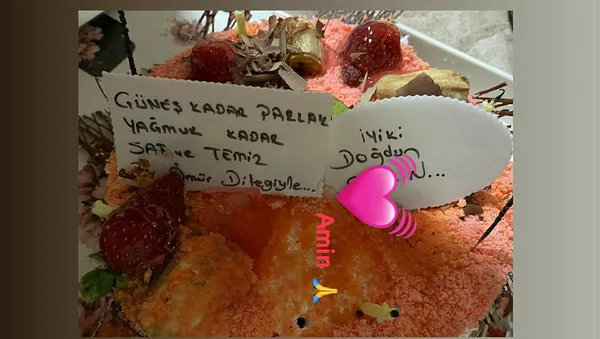 GÜNEŞ KADAR PARLAK
YAĞMUR KADAR
SAF ve TEMİZ
Ömür Dileğiyle...
İYİKİ
Doğdun
Amin 🙏